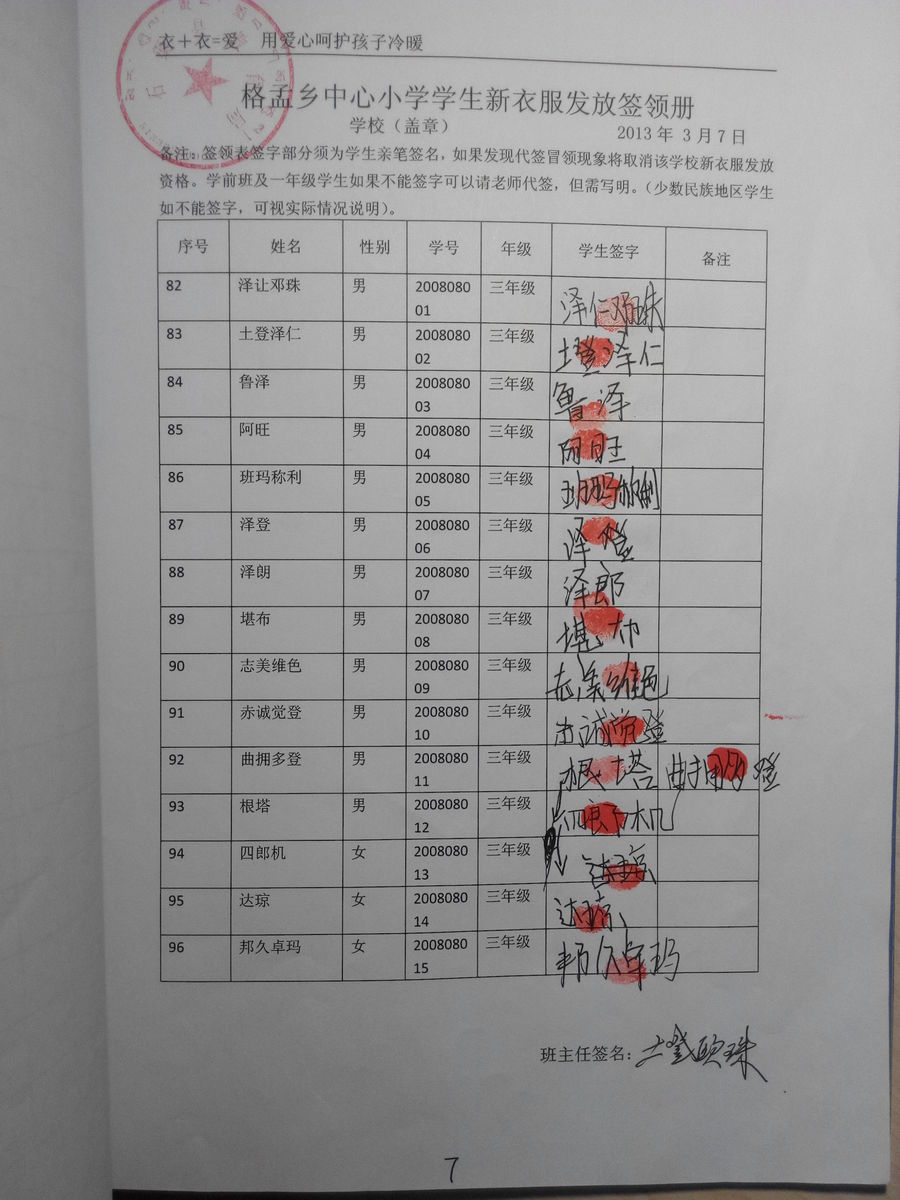 衣＋衣=爱 用爱心呵护孩子冷暖
格孟乡中心小学学生新衣服发放签领册
学校（盖章）
2013 年 3 月 7 日
备注：签领表签字部分须为学生亲笔签名，如果发现代签冒领现象将取消该学校新衣服发放
资格。学前班及一年级学生如果不能签字可以请老师代签，但需写明。（少数民族地区学生
如不能签字，可视实际情况说明）。
序号 姓名 性别 学号 年级 学生签字 备注
82 泽让邓珠 男 2008080 三年级 泽仁邓珠
01
83 土登泽仁 男 2008080 三年级 土登泽仁
02
84 鲁泽 男 2008080 三年级 鲁泽
03
85 阿旺 男 2008080 三年级 阿旺
04
86 班玛称利 男 2008080 三年级 班玛称利
05
87 泽登 男 2008080 三年级 泽登
06
88 泽朗 男 2008080 三年级 泽郎
07
89 堪布 男 2008080 三年级 堪布
08
90 志美维色 男 2008080 三年级 志美维色
09
91 赤诚觉登 男 2008080 三年级 诚觉登
10
92 曲拥多登 男 2008080 三年级 根塔 曲拥多登
11
93 根塔 男 2008080 三年级
12
94 四郎机 女 2008080 三年级 达琼
13
95 达琼 女 2008080 三年级 达琼
14
96 邦久卓玛 女 2008080 三年级 邦久卓玛
15
班主任签名：
7